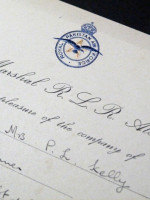 ROYAL PAKISTAN AIR FORCE
Marshal R. L. R. At
pleasure of the company of
Mrs P. L. Kelly